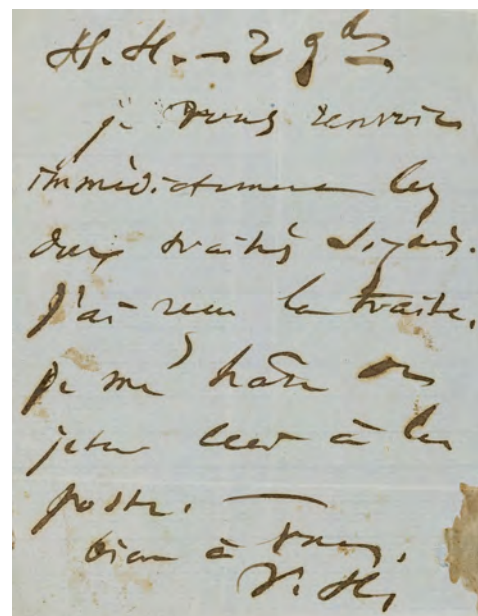 H. H. — 2 9bre
je vous renvoie
immédiatement les
deux traités signés.
J'ai reçu la traite.
Je me hâte de
jeter ceci à la
poste. —
bien à vous.
V. H.